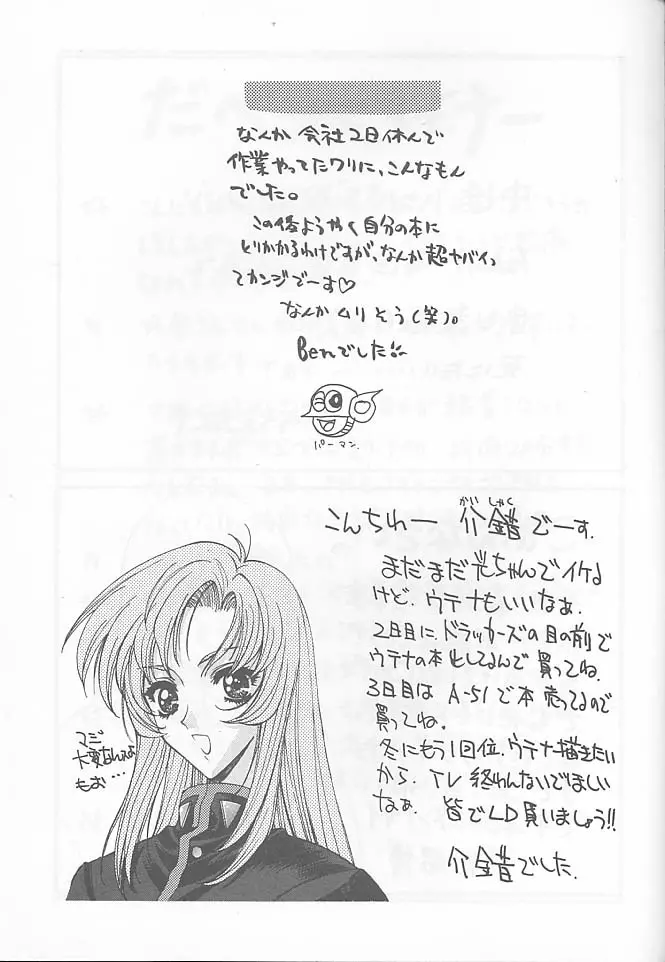 なんか 会社2日休んで
作業やってたワリに、こんなもん
でした。
この後ようやく自分の本に
とりかかるわけですが、なんか超ヤバイっ
てカンジでーす♡
なんかムリそう(笑)。
Benでした!!
パーマン.
こんちわー 介錯でーす.
がい しゃく
まだまだ光ちゃんでイケる
けど、ウテナもいいなぁ.
2日目に、ドラッカーズの目の前で
ウテナの本としてるんで 買ってね.
3日目は A-51で本 売ってるので
買ってね.
冬にもう1回位、ウテナ描きたい
から、TV 終わんないでほしい
なぁ. 皆でLD買いましょう!!
介錯でした.
マジ
大変なんスよ
もお…